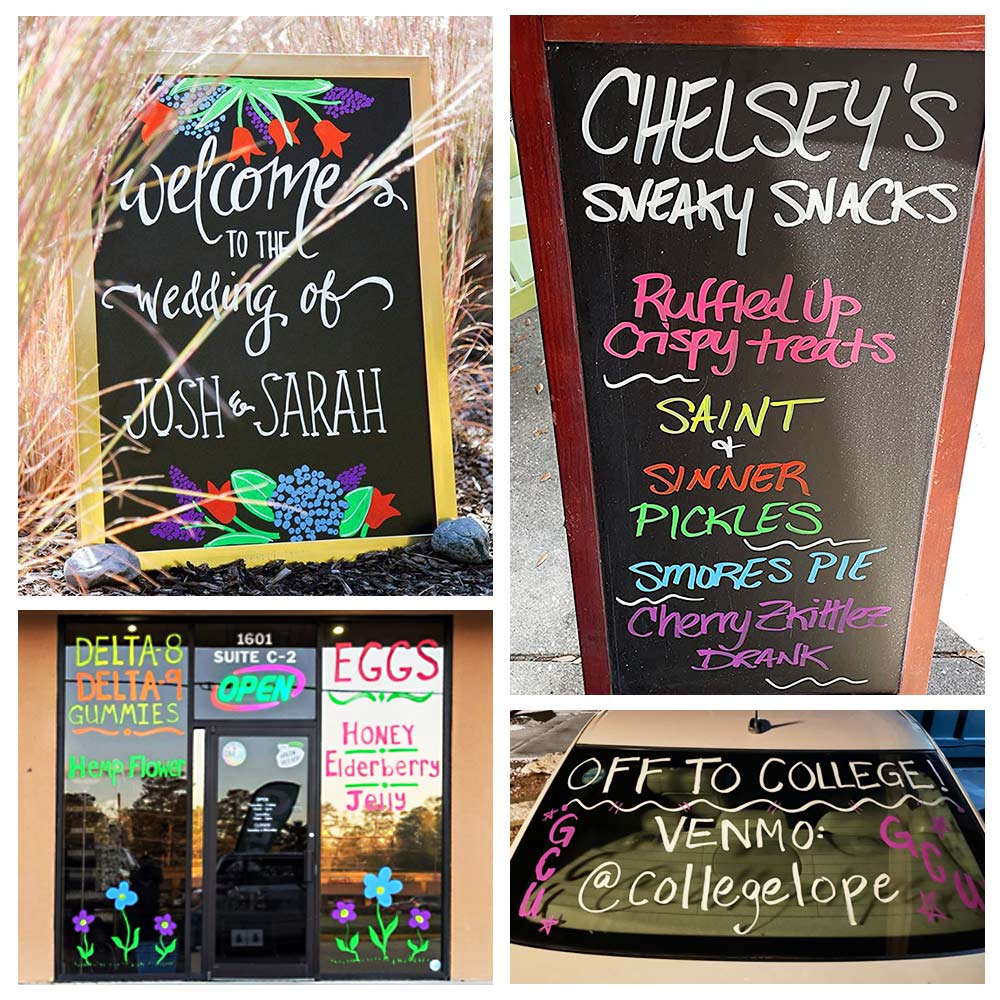 welcome
TO THE
wedding of
JOSH & SARAH
CHELSEY'S
SNEAKY SNACKS
Ruffled Up
Crispy treats
SAINT
&
SINNER
PICKLES
SMORES PIE
Cherry Zkittlez
DRANK
DELTA-8
DELTA-9
GUMMIES
Hemp Flower
1601
SUITE C-2
OPEN
OPEN
CLOSED
EGGS
HONEY
Elderberry
Jelly
OFF TO COLLEGE!
GCU
VENMO:
@collegelope
GCU